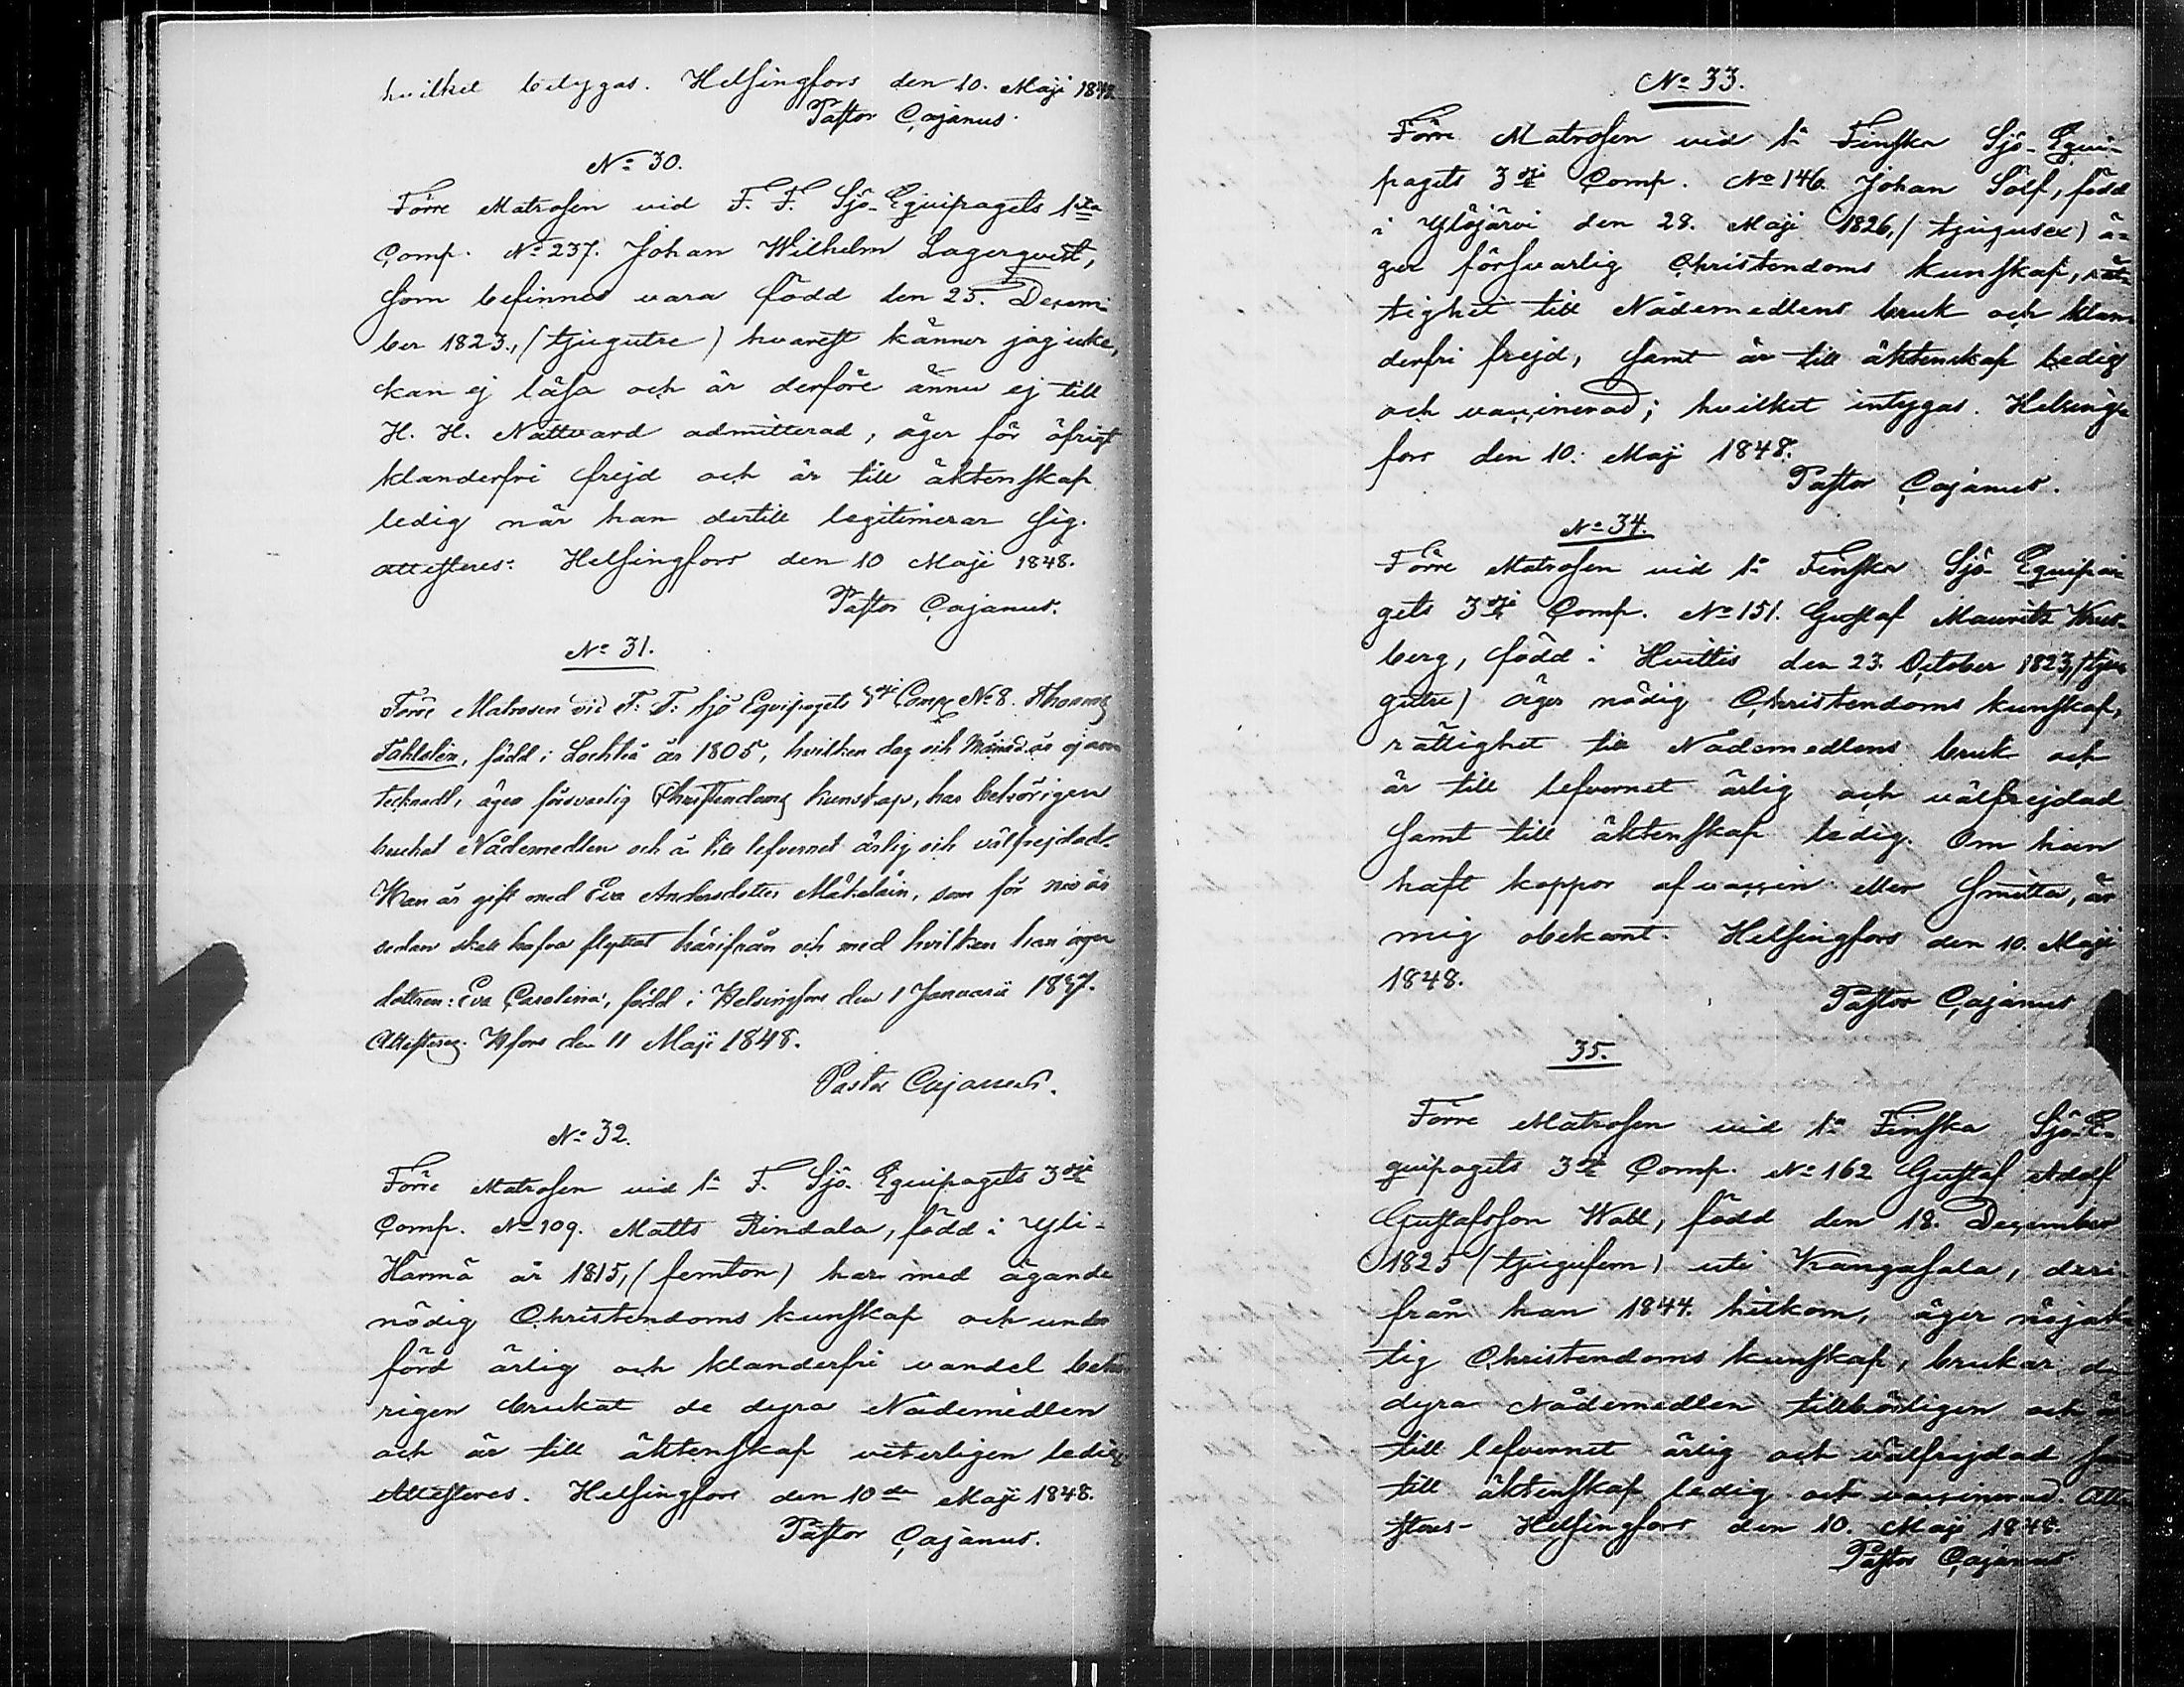 hvilket betygas. Helsingfors den 10. Maji 1848.
Pastor Cajanus.
No 30.
Förre Matrosen vid F. F. Sjö-Equipagets 1sta
Comp. No 237. Johan Wilhelm Lagerqvist,
som befinnes vara född den 25. Decem-
ber 1823, (tjugutre) hvarest känner jag icke,
kan ej läsa och är derföre ännu ej till
H. H. Nattvard admitterad, äger för öfrigt
klanderfri frejd och är till äktenskap
ledig när han dertill legitimerar sig.
attesteres: Helsingfors den 10 Maji 1848.
Pastor Cajanus.
No 31.
Förre Matrosen vid F. F. Sjö Equipagets Comp No 8. Thomas
Tahlelin, född i Lochteå år 1805, hvilken dag och Månad är ej ann
tecknadt, äger försvarlig Christendoms kunskap, har behörigen
bruchat Nådemedlen och är till lefvernet ärlig och välfrejdad.
Han är gift med Eva Andersdotter Mäkeläin, som för nio år
sedan skall hafva flyttat härifrån och med hvilken han äger
dottren: Eva Carolina, född i Helsingfors den 1 Januarii 1837.
Attesteras. Hfors den 11 Maji 1848.
Pastor Cajanus.
No 32.
Förre Matrosen vid 1a F. Sjö-Equipagets 3dje
Comp. No 109. Matts Rindala, född i Yli-
Härmä år 1815, (femton) har med ägande
nödig Christendoms kunskap och under
förd ärlig och klanderfri vandel behö
rigen brukat de dyra Nådemedlen
och är till äktenskap veterligen ledig
Attesteres. Helsingfors den 10de Maji 1848.
Pastor Cajanus.
No 33.
Förre Matrosen vid 1a Finska Sjö-Equi-
pagets 3dje Comp. No 146. Johan Sölf, född
i Ylöjärvi den 28. Maji 1826, (tjugusex) ä-
ger försvarlig Christendoms kunskap, rät-
tighet till Nådemedlens bruk och klan-
derfri frejd, samt är till äktenskap ledig
och vaccinerad; hvilket intygas. Helsing-
fors den 10. Maji 1848.
Pastor Cajanus.
No 34.
Förre Matrosen vid 1a Finska Sjö-Equipa-
gets 3dje Comp. No 151. Gustaf Mauritz
berg, född i Hvittis den 23. October 1823, (tju
gutre) äger nödig Christendoms kunskap,
rättighet till Nådemedlens bruk och
är till lefvernet ärlig och välfrejdad
samt till äktenskap ledig. Om han
haft koppor af vaccin eller smitta, är
mig obekant. Helsingfors den 10. Maji
1848.
Pastor Cajanus
35.
Förre Matrosen vid 1a Finska Sjö-E-
quipagets 3dje Comp. No 162 Gustaf Adolf
Gustafsson Wall, född den 18. December
1825 (tjugufem) uti Kangasala, deri-
från han 1844. hitkom, äger nöjak-
tig Christendoms kunskap, brukar de
dyra Nådemedlen tillbörligen och är
till lefvernet ärlig och välfrejdad
till äktenskap ledig och vaccinerad. Atte
steres - Helsingfors den 10. Maji 1848.
Pastor Cajanus